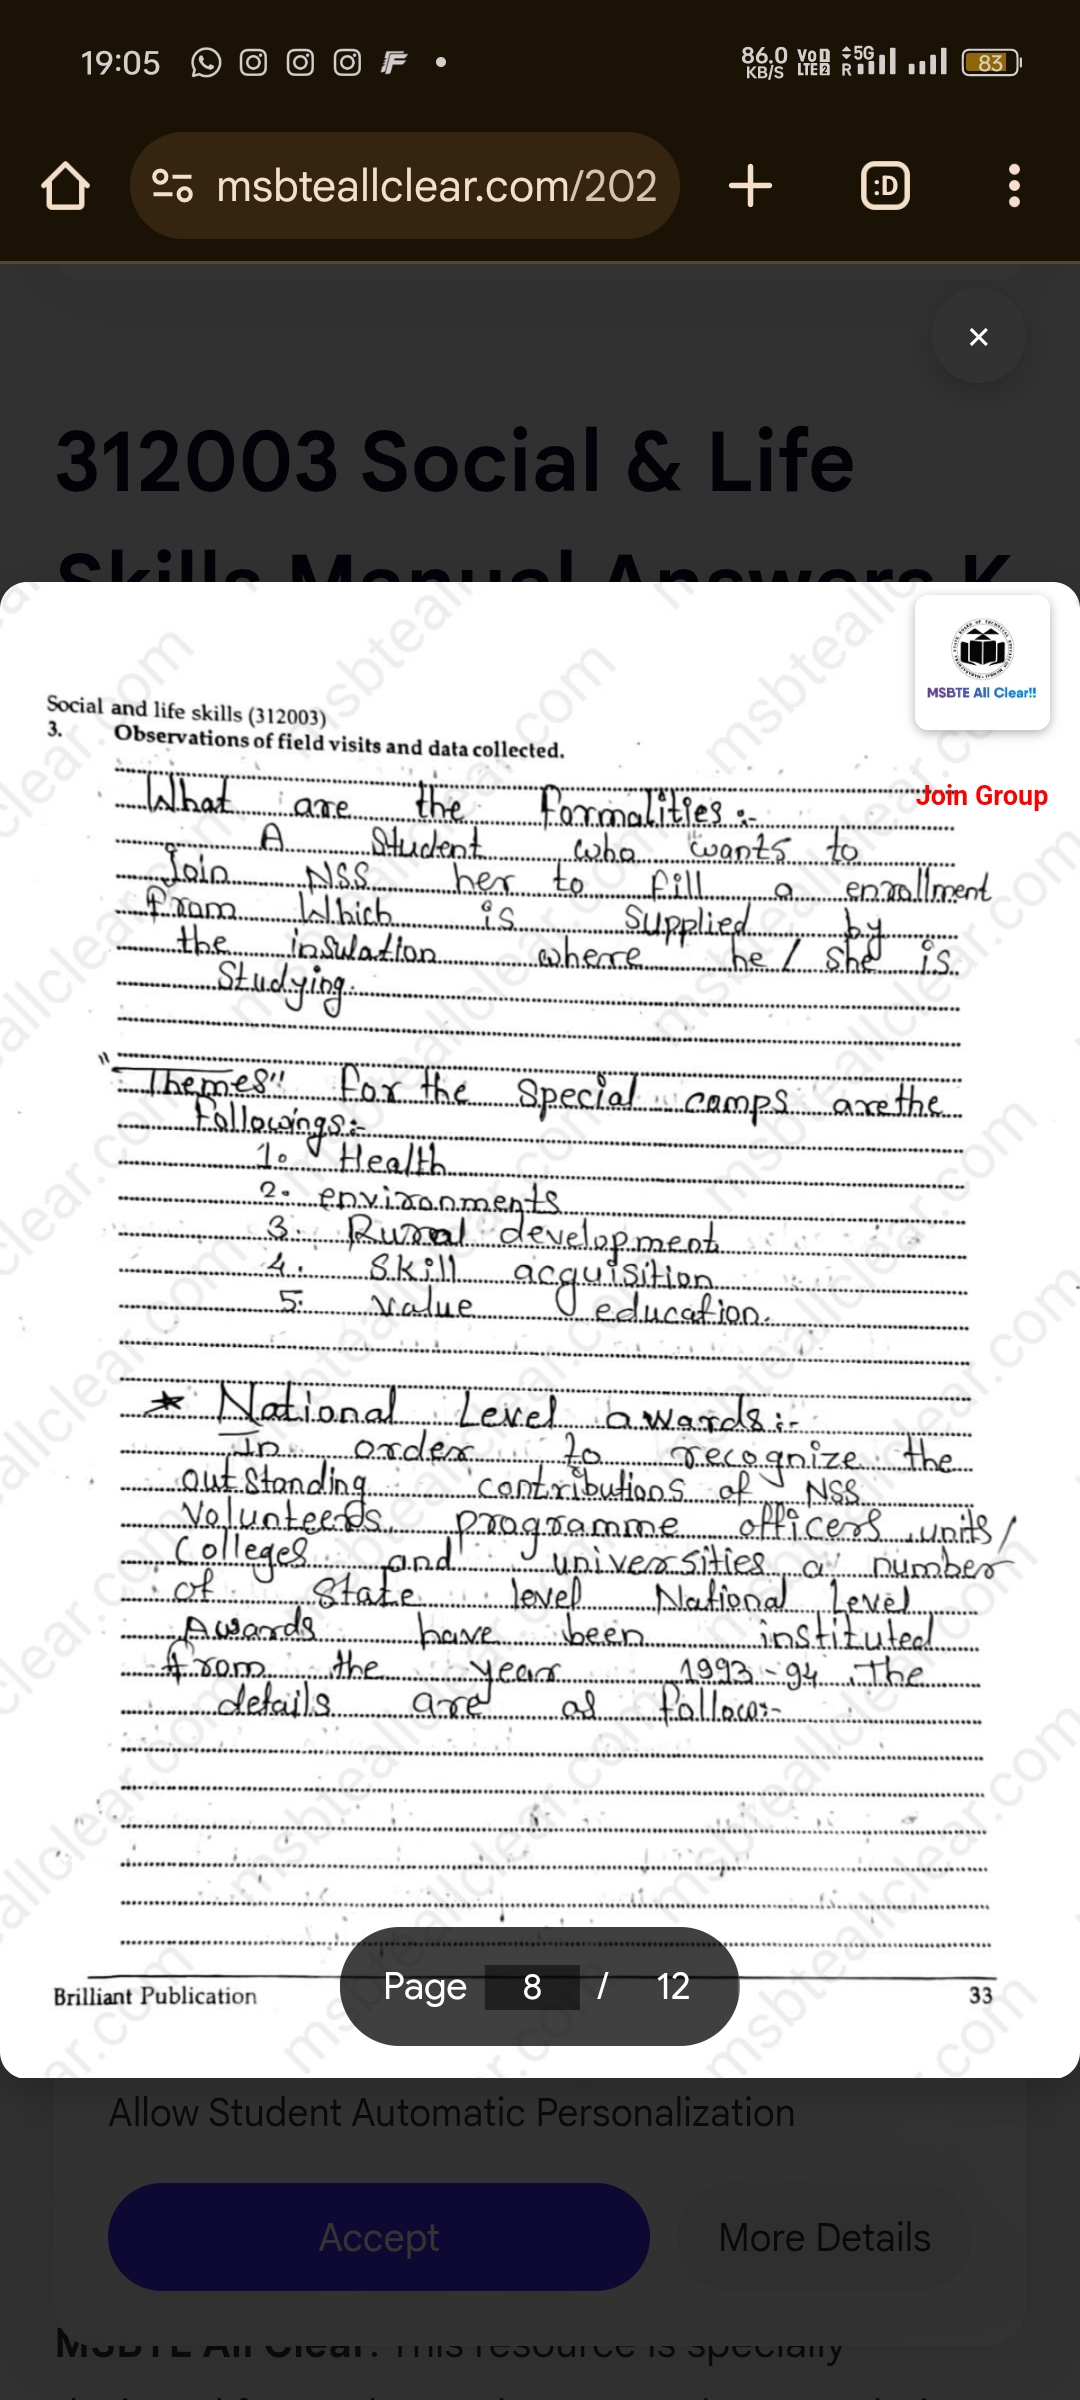 19:05
86.0 KB/S VoD LTE 2 5G R 83
msbteallclear.com/202
:D
×
312003 Social & Life
Skills Manual Answers K
MSBTE All Clear!!
Join Group
Social and life skills (312003)
3. Observations of field visits and data collected.
What are the formalities :-
A Student who wants to
Join NSS her to fill a enrollment
from Which is supplied by
the insulation where he / she is
Studying.
"Themes" for the Special camps are the
Followings:-
1. Health
2. environments
3. Rural development
4. Skill acquisition
5. value education.
* National Level awards:-
In order to recognize the
outstanding contributions of NSS
Volunteers, programme officers units/
Colleges and universities a number
of State level National Level
Awards have been instituted
from the year 1993-94. The
details are as follow:-
Brilliant Publication
33
Page 8 / 12
Allow Student Automatic Personalization
Accept
More Details
MSBTE All Clear. This resource is specially